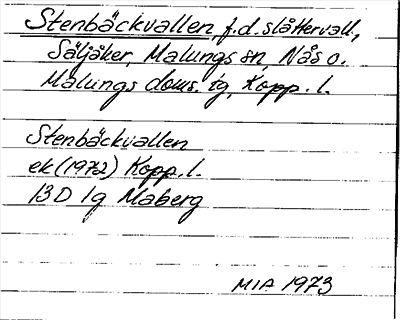 Stenbäckvallen f.d. slåttervall,
Säljåker, Malungs sn, Nås o.
Malungs doms. tg, Kopp. l.
Stenbäckvallen
ek (1972) Kopp. l.
13D 1g Maberg
MIA 1973